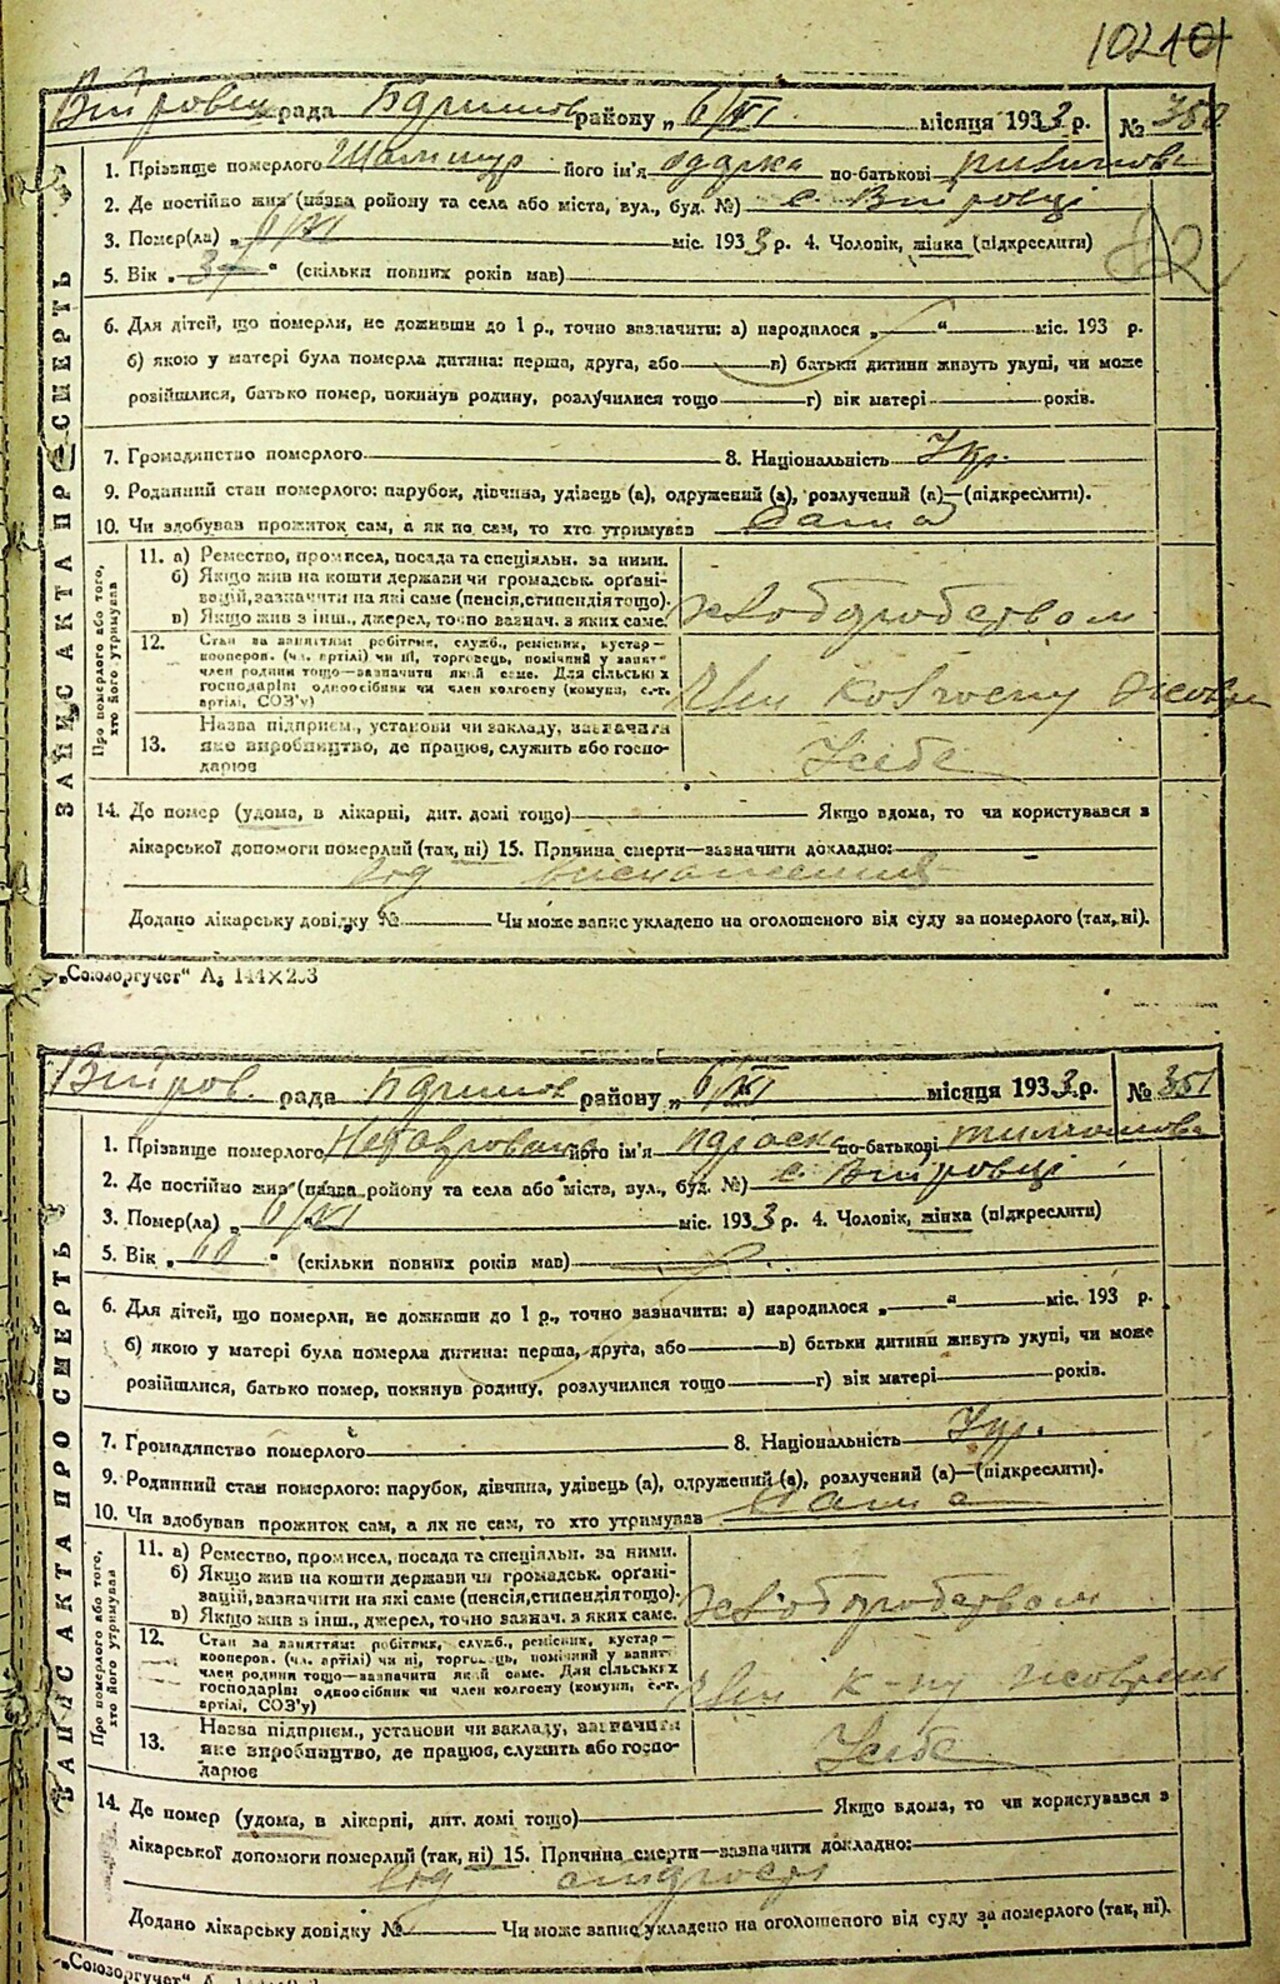 рада району „ 6/XI місяця 1933 р. № 350
1. Прізвище померлого його ім'я Одарка по-батькові
2. Де постійно жив (назва району та села або міста, вул., буд. №) с.
3. Помер(ла) „ міс. 1933 р. 4. Чоловік, жінка (підкреслити)
5. Вік „ 37 “ (скільки повних років мав)
6. Для дітей, що померли, не доживши до 1 р., точно зазначити: а) народилося „ “ міс. 193 р.
б) якою у матері була померла дитина: перша, друга, або в) батьки дитини живуть укупі, чи може
розійшлися, батько помер, покинув родину, розлучилися тощо г) вік матері років.
7. Громадянство померлого 8. Національність Укр.
9. Родинний стан померлого: парубок, дівчина, удівець (а), одружений (а), розлучений (а)—(підкреслити).
10. Чи здобував прожиток сам, а як не сам, то хто утримував сама
Про померлого або того, хто його утримував
11. а) Ремество, промисел, посада та спеціяльн. за ними.
б) Якщо жив на кошти держави чи громадськ. орґані-
зацій, зазначити на які саме (пенсія, стипендія тощо).
в) Якщо жив з інш., джерел, точно зазнач. з яких саме.
хліборобством
12. Стан за заняттям: робітник, служб., ремісник, кустар—
кооперов. (чл. артілі) чи ні, торговець, помічний у занят.
член родини тощо—зазначити який саме. Для сільських
господарів: одноосібник чи член колгоспу (комуни, с.-г.
артілі, СОЗ'у)
Член колгоспу
13. Назва підприєм., установи чи закладу, зазначити
яке виробництво, де працює, служить або госпо-
дарює
У себе
14. Де помер (удома, в лікарні, дит. домі тощо) Якщо вдома, то чи користувався з
лікарської допомоги померлий (так, ні) 15. Причина смерти—зазначити докладно:
від
Додано лікарську довідку № Чи може запис укладено на оголошеного від суду за померлого (так, ні).
ЗАПИС АКТА ПРО СМЕРТЬ
„Союзоргучет“ А. 144×203
рада району „ 6/XI місяця 1933 р. № 351
1. Прізвище померлого його ім'я по-батькові
2. Де постійно жив (назва району та села або міста, вул., буд. №) с.
3. Помер(ла) „ 6/XI міс. 1933 р. 4. Чоловік, жінка (підкреслити)
5. Вік „ 60 “ (скільки повних років мав)
6. Для дітей, що померли, не доживши до 1 р., точно зазначити: а) народилося „ “ міс. 193 р.
б) якою у матері була померла дитина: перша, друга, або в) батьки дитини живуть укупі, чи може
розійшлися, батько помер, покинув родину, розлучилися тощо г) вік матері років.
7. Громадянство померлого 8. Національність Укр.
9. Родинний стан померлого: парубок, дівчина, удівець (а), одружений (а), розлучений (а)—(підкреслити).
10. Чи здобував прожиток сам, а як не сам, то хто утримував сама
Про померлого або того, хто його утримував
11. а) Ремество, промисел, посада та спеціяльн. за ними.
б) Якщо жив на кошти держави чи громадськ. орґані-
зацій, зазначити на які саме (пенсія, стипендія тощо).
в) Якщо жив з інш., джерел, точно зазнач. з яких саме.
хліборобством
12. Стан за заняттям: робітник, служб., ремісник, кустар—
кооперов. (чл. артілі) чи ні, торговець, помічний у занят.
член родини тощо—зазначити який саме. Для сільських
господарів: одноосібник чи член колгоспу (комуни, с.-г.
артілі, СОЗ'у)
Член к-пу
13. Назва підприєм., установи чи закладу, зазначити
яке виробництво, де працює, служить або госпо-
дарює
У себе
14. Де помер (удома, в лікарні, дит. домі тощо) Якщо вдома, то чи користувався з
лікарської допомоги померлий (так, ні) 15. Причина смерти—зазначити докладно:
від старості
Додано лікарську довідку № Чи може запис укладено на оголошеного від суду за померлого (так, ні).
ЗАПИС АКТА ПРО СМЕРТЬ
„Союзоргучет“